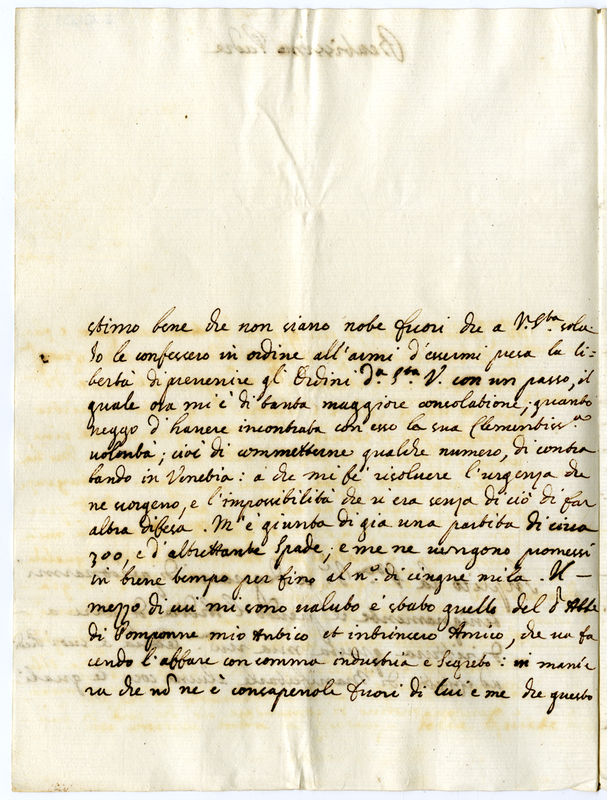 stimo bene che non siano note fuori che a V. Sta sola
Io le confesserò in ordine all'armi d'essermi presa la li-
bertà di prevenire gl'Ordini da Sta V. con un passo, il
quale ora mi è di tanta maggiore consolatione, quanto
veggo d'havere incontrata con esso la sua Clementissma
volontà; cioè di commetterne qualche numero, di contra
bando in Venetia: a che mi fè risolvere l'urgenza che
ne scorgeno, e l'impossibilità che vi era senza di ciò di far
altra difesa. M'è giunta di già una partita di circa
300, e d'altrettante Spade; e me ne vengono promessi
in breve tempo per fino al no. di cinque mila. Il
mezzo di cui mi sono valuto è stato quello del Abbe
di Pomponne mio Antico et intrinseco Amico, che va fa
cendo l'affare con somma industria e Segreto: in manie
ra che no ne è consapevole fuori di lui e me che questo